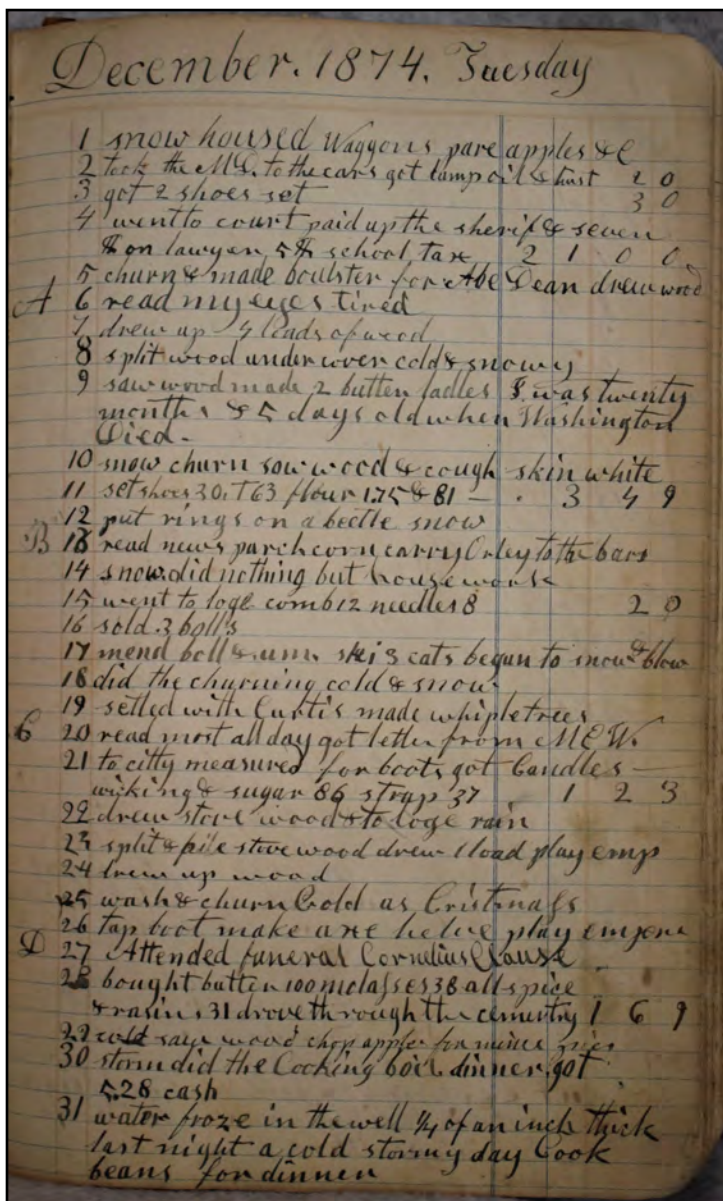 December. 1874. Tuesday
1 snow housed Waggons pare apples & C
2 took the M.D. to the cars got lamp oil & 2 0
3 got 2 shoes set 3 0
4 went to court paid up the sherif & seven
$ on lawyer 5 $ school tax 2 1 0 0
5 churn & made boulster for Abe Dean drew wood
A 6 read my eyes tired
7 drew up 4 loads of wood
8 split wood under cover cold & snowy
9 saw wood made 2 butter ladles I was twenty
months & 5 days old when Washington
Died.
10 snow churn sow wood & cough skin white
11 set shoes 30. T 63 flour 1.75 & 81 - . 3 4 9
12 put rings on a beetle snow
B 13 read news parch corn carry Orley to the bars
14 snow did nothing but housework
15 went to loge comb 12 needles 8 2 0
16 sold 3 bolls
17 mend boll & ski 3 cats begun to snow & blow
18 did the churning cold & snow
19 setled with Curtis made whipletrees
C 20 read most all day got letter from M C W.
21 to citty measures for boots got Candles
wicking & sugar 86 strap 37 1 2 3
22 drew stove wood & to loge rain
23 split & pile stove wood drew 1 load play emp
24 drew up wood
25 wash & churn Cold as Cristmass
26 tap boot make axe helve play
D 27 Attended funeral Cornelius Clause
28 bought butter 100 molasses 38 allspice
& rasins 31 drove through the cementry 1 6 9
29 cold saw wood chop apples for mince pies
30 storm did the Cooking boil dinner got
5.28 cash
31 water froze in the well ¼ of an inch thick
last night a cold stormy day Cook
beans for dinner